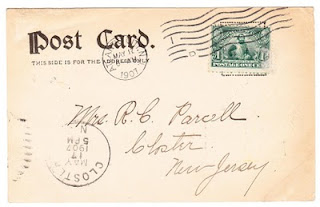 Post Card.
THIS SIDE IS FOR THE ADDRESS ONLY
MAY 17
1907
1
Mrs. R. C. Parcell
Closter
New Jersey.
CLOSTE
MAY
17
5 PM
1907
N